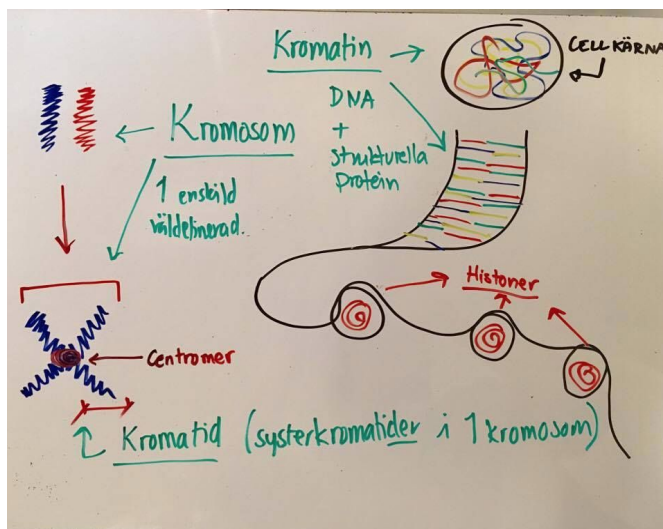 Kromatin
CELLKÄRNA
DNA
+
Strukturella
protein
Kromosom
1 enskild
väldefinerad.
Histoner
Centromer
Kromatid (systerkromatider i 1 kromosom)